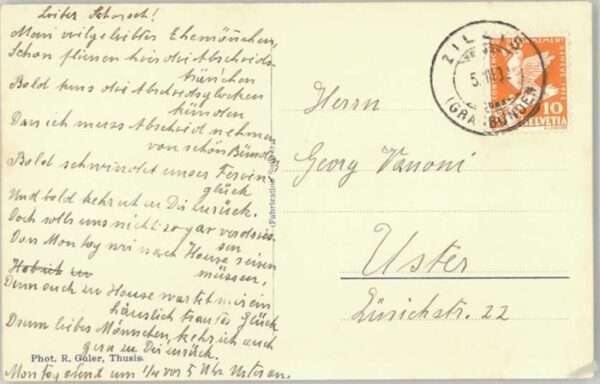 Lieber Schorsch!
Mein vilgeliebtes Ehemönnchen,
Schon fliesen hier die Abschieds-
tränchen
Bald tuns die Abschiedsglocken
künden
Dan ich muss Abschied nehmen
von schön Bünden
Bald schwindet unser Ferien-
glück
Und bald kehr ich zu Dir zurück.
Doch solls uns nicht so gar verdries-
sen
Das Montag wir nach Hause reisen
müssen,
Denn auch zu Hause wartet mir ein
häuslich trautes Glück
Drum liebes Männchen, kehr ich auch
gern zu Dir zurück.
Montag abend um 1/4 vor 5 Uhr Uster an.
Phot. R. Guler, Thusis.
(Fabrication
ZILLIS
(GRAUBÜNDEN)
10
HELVETIA
Herrn
Georg Vanoni
Uster
Zürichstr. 22